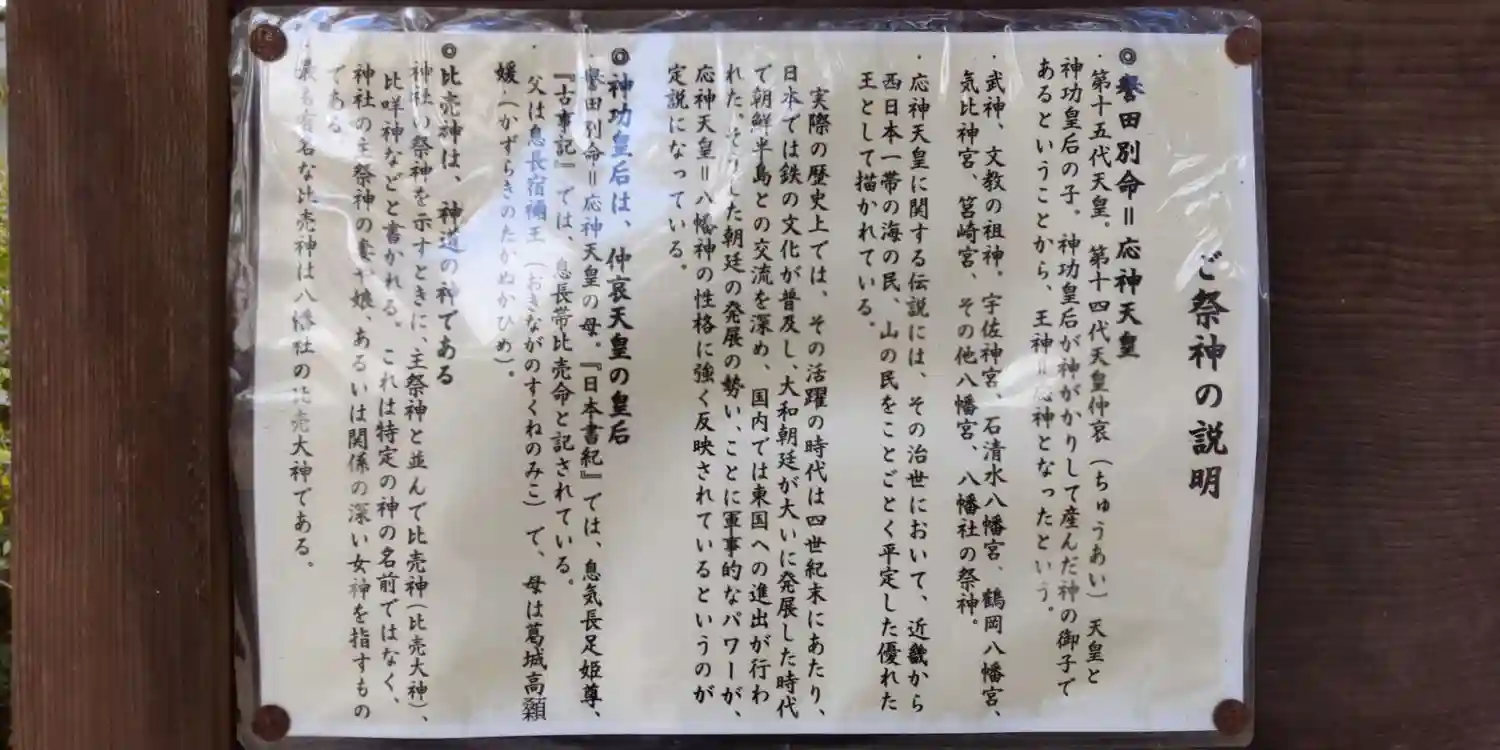 ご祭神の説明
◎誉田別命＝応神天皇
・第十五代天皇。第十四代天皇仲哀（ちゅうあい）天皇と
神功皇后の子。神功皇后が神がかりして産んだ神の御子で
あるということから、王神＝応神となったという。
・武神、文教の祖神。宇佐神宮、石清水八幡宮、鶴岡八幡宮、
気比神宮、筥崎宮、その他八幡宮、八幡社の祭神。
・応神天皇に関する伝説には、その治世において、近畿から
西日本一帯の海の民、山の民をことごとく平定した優れた
王として描かれている。
実際の歴史上では、その活躍の時代は四世紀末にあたり、
日本では鉄の文化が普及し、大和朝廷が大いに発展した時代
で朝鮮半島との交流を深め、国内では東国への進出が行わ
れた。そうした朝廷の発展の勢い、ことに軍事的なパワーが、
応神天皇＝八幡神の性格に強く反映されているというのが
定説になっている。
◎神功皇后は、仲哀天皇の皇后
・誉田別命＝応神天皇の母。『日本書紀』では、息気長足姫尊、
『古事記』では、息長帯比売命と記されている。
・父は息長宿禰王（おきながのすくねのみこ）で、母は葛城高顙
媛（かずらきのたかぬかひめ）。
◎比売神は、神道の神である
神社の祭神を示すときに、主祭神と並んで比売神（比売大神）、
比咩神などと書かれる。これは特定の神の名前ではなく、
神社の主祭神の妻や娘、あるいは関係の深い女神を指すもの
である。
最も有名な比売神は八幡社の比売大神である。